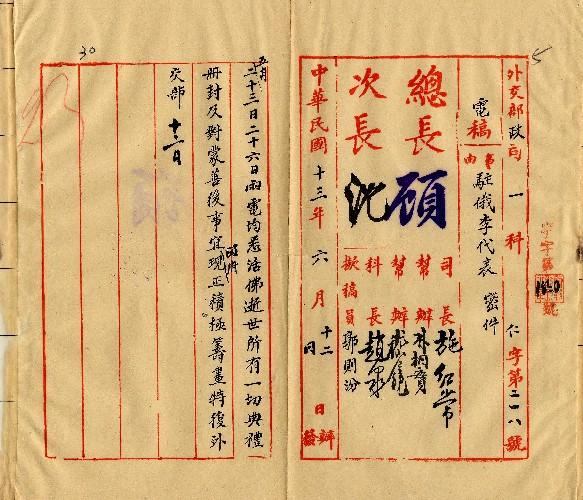 5
外交部政司一科仁字第二一八號
電稿
事由
駐俄李代表 密件
總長 顧
次長 沈
司長 施紹常
幫辦 朴桐賓
幫辦
科長 趙泉
擬稿員 郭則汾
中華民國十三年六月十二日
日辦發
字第1620號
30
五月
二十三日二十六日兩電均悉活佛逝世所有一切典禮
冊封及對蒙善後事宜政府現正積極籌畫特復外
交部 十二日